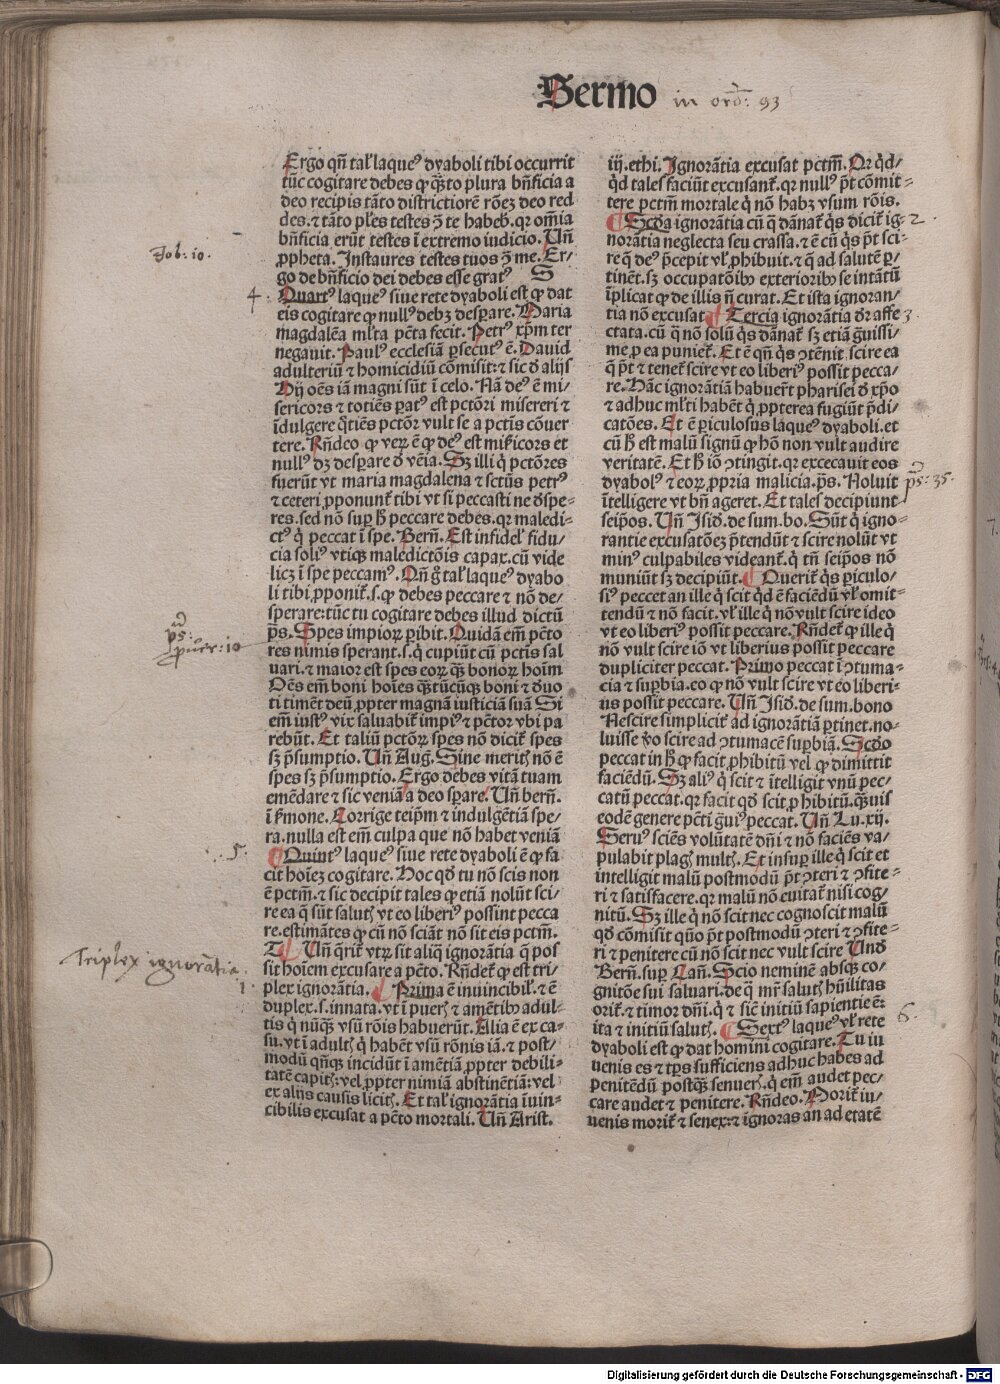 Sermo in ord: 93
Ergo qñ tal' laqueꝰ dyaboli tibi occurrit
tūc cogitare debes ꝙ q̄̄to plura bñficia a
deo recipis tāto districtiorē rōeʒ deo red
des. ⁊ tāto pl'es testes ↄ̄ te habeb̄. qr om̄ia
bñficia erūt testes ī extremo iudicio. Uñ
ꝓpheta. Instaures testes tuos ↄ̄ me. Er⸗
go de bñficio dei debes esse gratꝰ S
Job: 10.
4.
Quartꝰ laqueꝰ siue rete dyaboli est ꝙ dat
eis cogitare ꝙ nullꝰ debʒ desꝑare. Maria
magdalēa ml'ta pctā fecit. Petrꝰ xp̄m ter
negauit. Paulꝰ ecclesiā ꝑsecutꝰ ē. Dauid
adulteriū ⁊ homicidiū cōmisit: ⁊ sic d̄ alijs
Hij oēs iā magni sūt ī celo. Nā deꝰ ē mi⸗
sericors ⁊ totiēs ꝑatꝰ est pctōri misereri ⁊
īdulgere q̄tiēs pctōr vult se a pctis cōuer
tere. Rñdeo ꝙ verꝫ ē ꝙ deꝰ est miẜicors et
nullꝰ dʒ desꝑare d̄ vēia. Sʒ illi q̇ pctōres
fuerūt vt maria magdalena ⁊ sctūs petrꝰ
⁊ ceteri ꝓponunt̄ tibi vt si peccasti ne d̄spe⸗
res. sed nō suꝑ h̄ peccare debes. qr maledi⸗
ctꝰ q̇ peccat ī spe. Bern̄. Est infidel' fidu⸗
cia soliꝰ vtiqꝫ maledictōis capax. cū vide
licʒ ī spe peccamꝰ. Qñ g̊ tal' laqueꝰ dyabo
li tibi ꝓponit̄. s. ꝙ debes peccare ⁊ nō de⸗
sperare: tūc tu cogitare debes illud dictū
p̄s. Spes impioꝝ ꝑibit. Quidā em̄ pctō
res nimis sperant. s. q̇ cupiūt cū pctis sal
uari. ⁊ maior est spes eoꝝ q̄ʒ bonoꝝ hoīm
ps:
prouer: 10
Oēs em̄ boni hoīes q̄ʒtūcūqꝫ boni ⁊ d̄uo
ti timēt deū ꝓpter magnā iusticiā suā Si
em̄ iustꝰ vix saluabit̄ impiꝰ ⁊ pctōr vbi pa
rebūt. Et taliū pctōꝝ spes nō dicit̄ spes
sʒ p̄sumptio. Uñ Auḡ. Sine meritꝭ nō ē
spes sʒ p̄sumptio. Ergo debes vitā tuam
emēdare ⁊ sic veniā a deo sꝑare. Uñ bern̄.
ī ẜmone. Corrige teip̄m ⁊ indulgētiā spe⸗
ra. nulla est em̄ culpa que nō habet veniā
5.
Quintꝰ laqueꝰ siue rete dyaboli ē ꝙ fa
cit hoīeʒ cogitare. Hoc qd̄ tu nō scis non
ē pctm̄. ⁊ sic decipit tales ꝙ etiā nolūt sci⸗
re ea q̄ sūt salutꝭ vt eo liberiꝰ possint pecca
re. estimātes ꝙ cū nō sciāt nō sit eis pctm̄.
T Uñ q̄rit̄ vtꝝ sit aliq̄ ignorātia q̄ pos
sit hoīem excusare a pctō. Rñdet̄ ꝙ est tri⸗
plex ignorātia. Prima ē inuincibil'. ⁊ ē
Triplex ignorātia.
1.
duplex. s. innata. vt ī puerꝭ ⁊ amētibꝰ adul⸗
tis q̇ nūq̄ʒ vsū rōis habuerūt. Alia ē ex ca⸗
su. vt ī adultꝭ q̇ habēt vsū rōnis iā. ⁊ post⸗
modū qñqꝫ incidūt ī amētiā ꝓpter debili⸗
tatē capitꝭ: vel ꝓpter nimiā abstinētiā: vel
ex alijs causis licitꝭ. Et tal' ignorātia īuin⸗
cibilis excusat a pctō mortali. Uñ Arist.
iij. ethi. Ignorātia excusat pctm̄. Qr qd̄⸗
qd̄ tales faciūt excusant̄. qr nullꝰ p̄t cōmit⸗
tere pctm̄ mortale q̇ nō habʒ vsum rōis.
Scd̄a ignorātia cū q̄ dānat̄ q̇s dicit̄ ig⸗
2.
norātia neglecta seu crassa. ⁊ ē cū q̇s p̄t sci⸗
re q̄ deꝰ p̄cepit vl' ꝓhibuit. ⁊ q̄ ad salutē ꝑ⸗
tinēt. sʒ occupatōibꝰ exterioribꝰ se intātū
īplicat ꝙ de illis nō curat. Et ista ignoran⸗
tia nō excusat Tercia ignorātia d̄r affe
3.
ctata. cū q̄ nō solū q̇s dānat̄ sʒ etiā g̊uissi⸗
me ꝓ ea puniet̄. Et ē qñ q̇s ↄtēnit scire ea
q̄ p̄t ⁊ tenet̄ scire vt eo liberiꝰ possit pecca⸗
re. Hāc ignorātiā habuert̄ pharisei d̄ xp̄o
⁊ adhuc ml'ti habēt q̇ ꝓpterea fugiūt p̄di⸗
catōes. Et ē ꝑiculosus laqueꝰ dyaboli. et
cū h̄ est malū signū ꝙ hō non vult audire
veritatē. Et h̄ iō ↄtingit. qr excecauit eos
dyabolꝰ ⁊ eoꝝ ꝓpria malicia. p̄s. Noluit
ps: 35.
ītelligere vt bñ ageret. Et tales decipiunt
seip̄os. Uñ Isid̄. de sum. bo. Sūt q̇ igno⸗
rantie excusatōeʒ p̄tendūt ⁊ scire nolūt vt
minꝰ culpabiles videant̄. q̇ tñ seip̄os nō
muniūt sʒ decipiūt. Querit̄ q̇s ꝑiculo⸗
siꝰ peccet an ille q̇ scit qd̄ ē faciēdū vl' omit⸗
tendū ⁊ nō facit. vl' ille q̇ nō vult scire ideo
vt eo liberiꝰ possit peccare. Rñdet̄ ꝙ ille q̇
nō vult scire iō vt liberius possit peccare
dupliciter peccat. Primo peccat ī ↄtuma⸗
cia ⁊ suꝑbia. eo ꝙ nō vult scire vt eo liberi⸗
us possit peccare. Uñ Isid̄. de sum. bono
Nescire simplicit̄ ad ignorātiā ꝑtinet. no⸗
luisse v̊o scire ad ↄtumacē suꝑbiā. Scd̄o
peccat in h̄ ꝙ facit ꝓhibitū vel ꝙ dimittit
faciēdū. Sʒ aliꝰ q̇ scit ⁊ ītelligit vnū pec⸗
catū peccat. qr facit qd̄ scit ꝓhibitū. q̄ʒuis
eodē genere pcti g̊uiꝰ peccat. Uñ Lu. xij.
Seruꝰ sciēs volūtatē dn̄i ⁊ nō faciēs va⸗
pulabit plagꝭ multꝭ. Et insuꝑ ille q̇ scit et
intelligit malū postmodū p̄t ↄteri ⁊ ↄfite⸗
ri ⁊ satisfacere. qr malū nō euitat̄ nisi cog⸗
nitū. Sʒ ille q̇ nō scit nec cognoscit malū
qd̄ cōmisit quō p̄t postmodū ↄteri ⁊ ↄfite⸗
ri ⁊ penitere cū nō scit nec vult scire Und̄
Bern̄. suꝑ Can̄. Scio neminē absqꝫ co⸗
gnitōe sui saluari. de q̄ mr̄ salutꝭ hūilitas
orit̄ ⁊ timor dn̄i. q̇ ⁊ sic initiū sapientie ē:
ita ⁊ initiū salutꝭ. Sextꝰ laqueꝰ vl' rete
6.
dyaboli est ꝙ dat homini cogitare. Tu iu
uenis es ⁊ tp̄s sufficiens adhuc habes ad
penitēdū postq̄ʒ senuerꝭ. q̇ em̄ audet pec⸗
care audet ⁊ penitere. Rñdeo. Morit̄ iu⸗
uenis morit̄ ⁊ senex: ⁊ ignoras an ad etatē
Digitalisierung gefördert durch die Deutsche Forschungsgemeinschaft - DFG